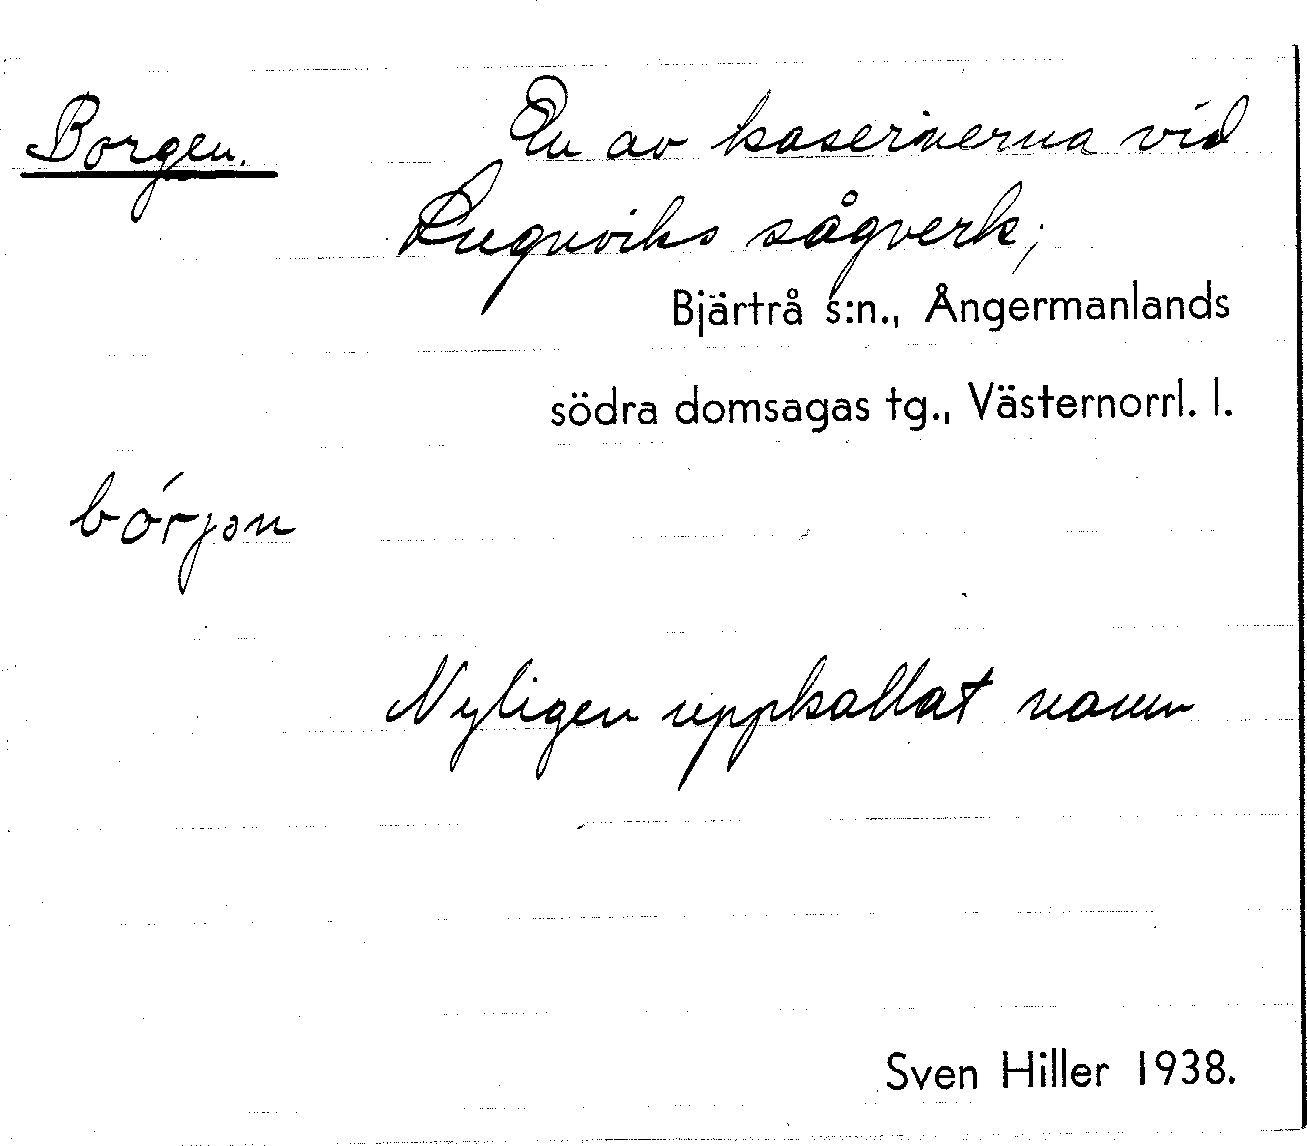 Borgen. En av kasernerna vid
Lugnviks sågverk;
Bjärtrå s:n., Ångermanlands
södra domsagas tg., Västernorrl. l.
bórjən
Nyligen uppkallat namn
Sven Hiller 1938.